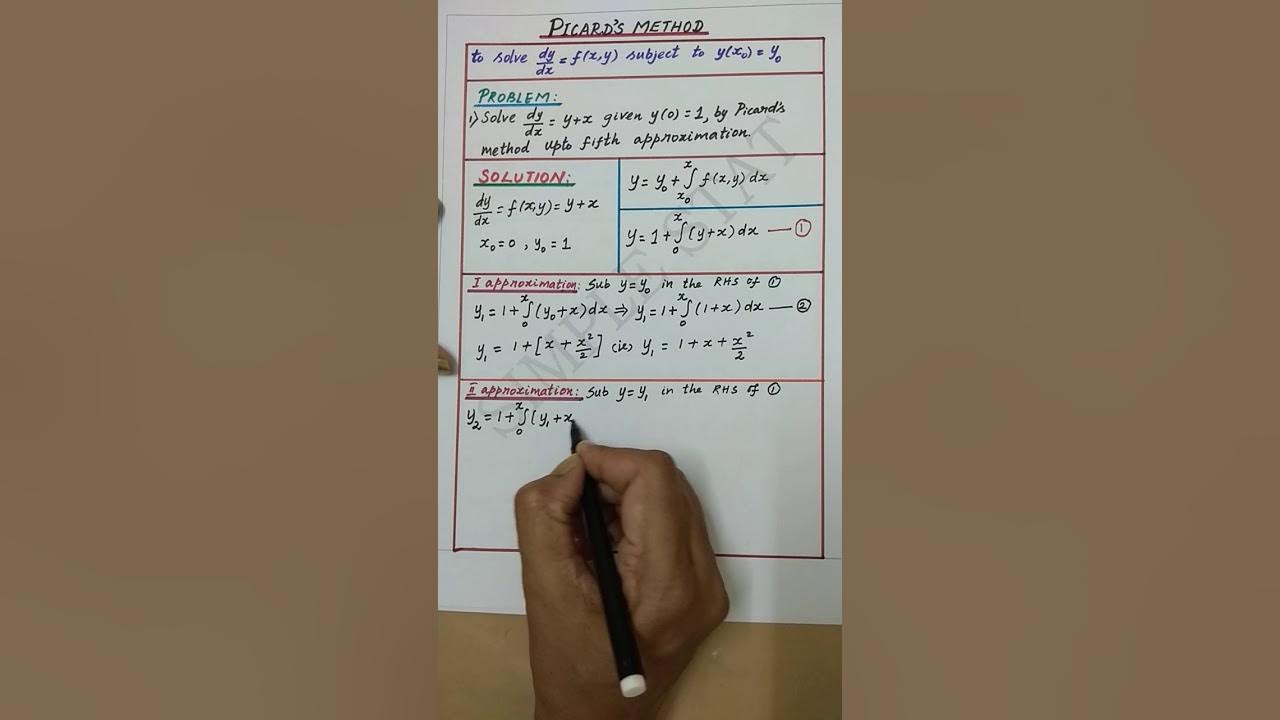 PICARD'S METHOD
to solve dy/dx = f(x,y) subject to y(x₀) = y₀
PROBLEM:
1) Solve dy/dx = y+x given y(0) = 1, by Picard's
method upto fifth approximation.
SOLUTION:
dy/dx = f(x,y) = y+x
x₀ = 0 , y₀ = 1
y = y₀ + ∫ₓ₀ˣ f(x,y) dx
y = 1 + ∫₀ˣ (y+x) dx — ①
I approximation: Sub y = y₀ in the RHS of ①
y₁ = 1 + ∫₀ˣ (y₀+x) dx ⇒ y₁ = 1 + ∫₀ˣ (1+x) dx — ②
y₁ = 1 + [x + x²/2] (ie) y₁ = 1 + x + x²/2
II approximation: Sub y = y₁ in the RHS of ①
y₂ = 1 + ∫₀ˣ (y₁ + x
SIMPLE STAT